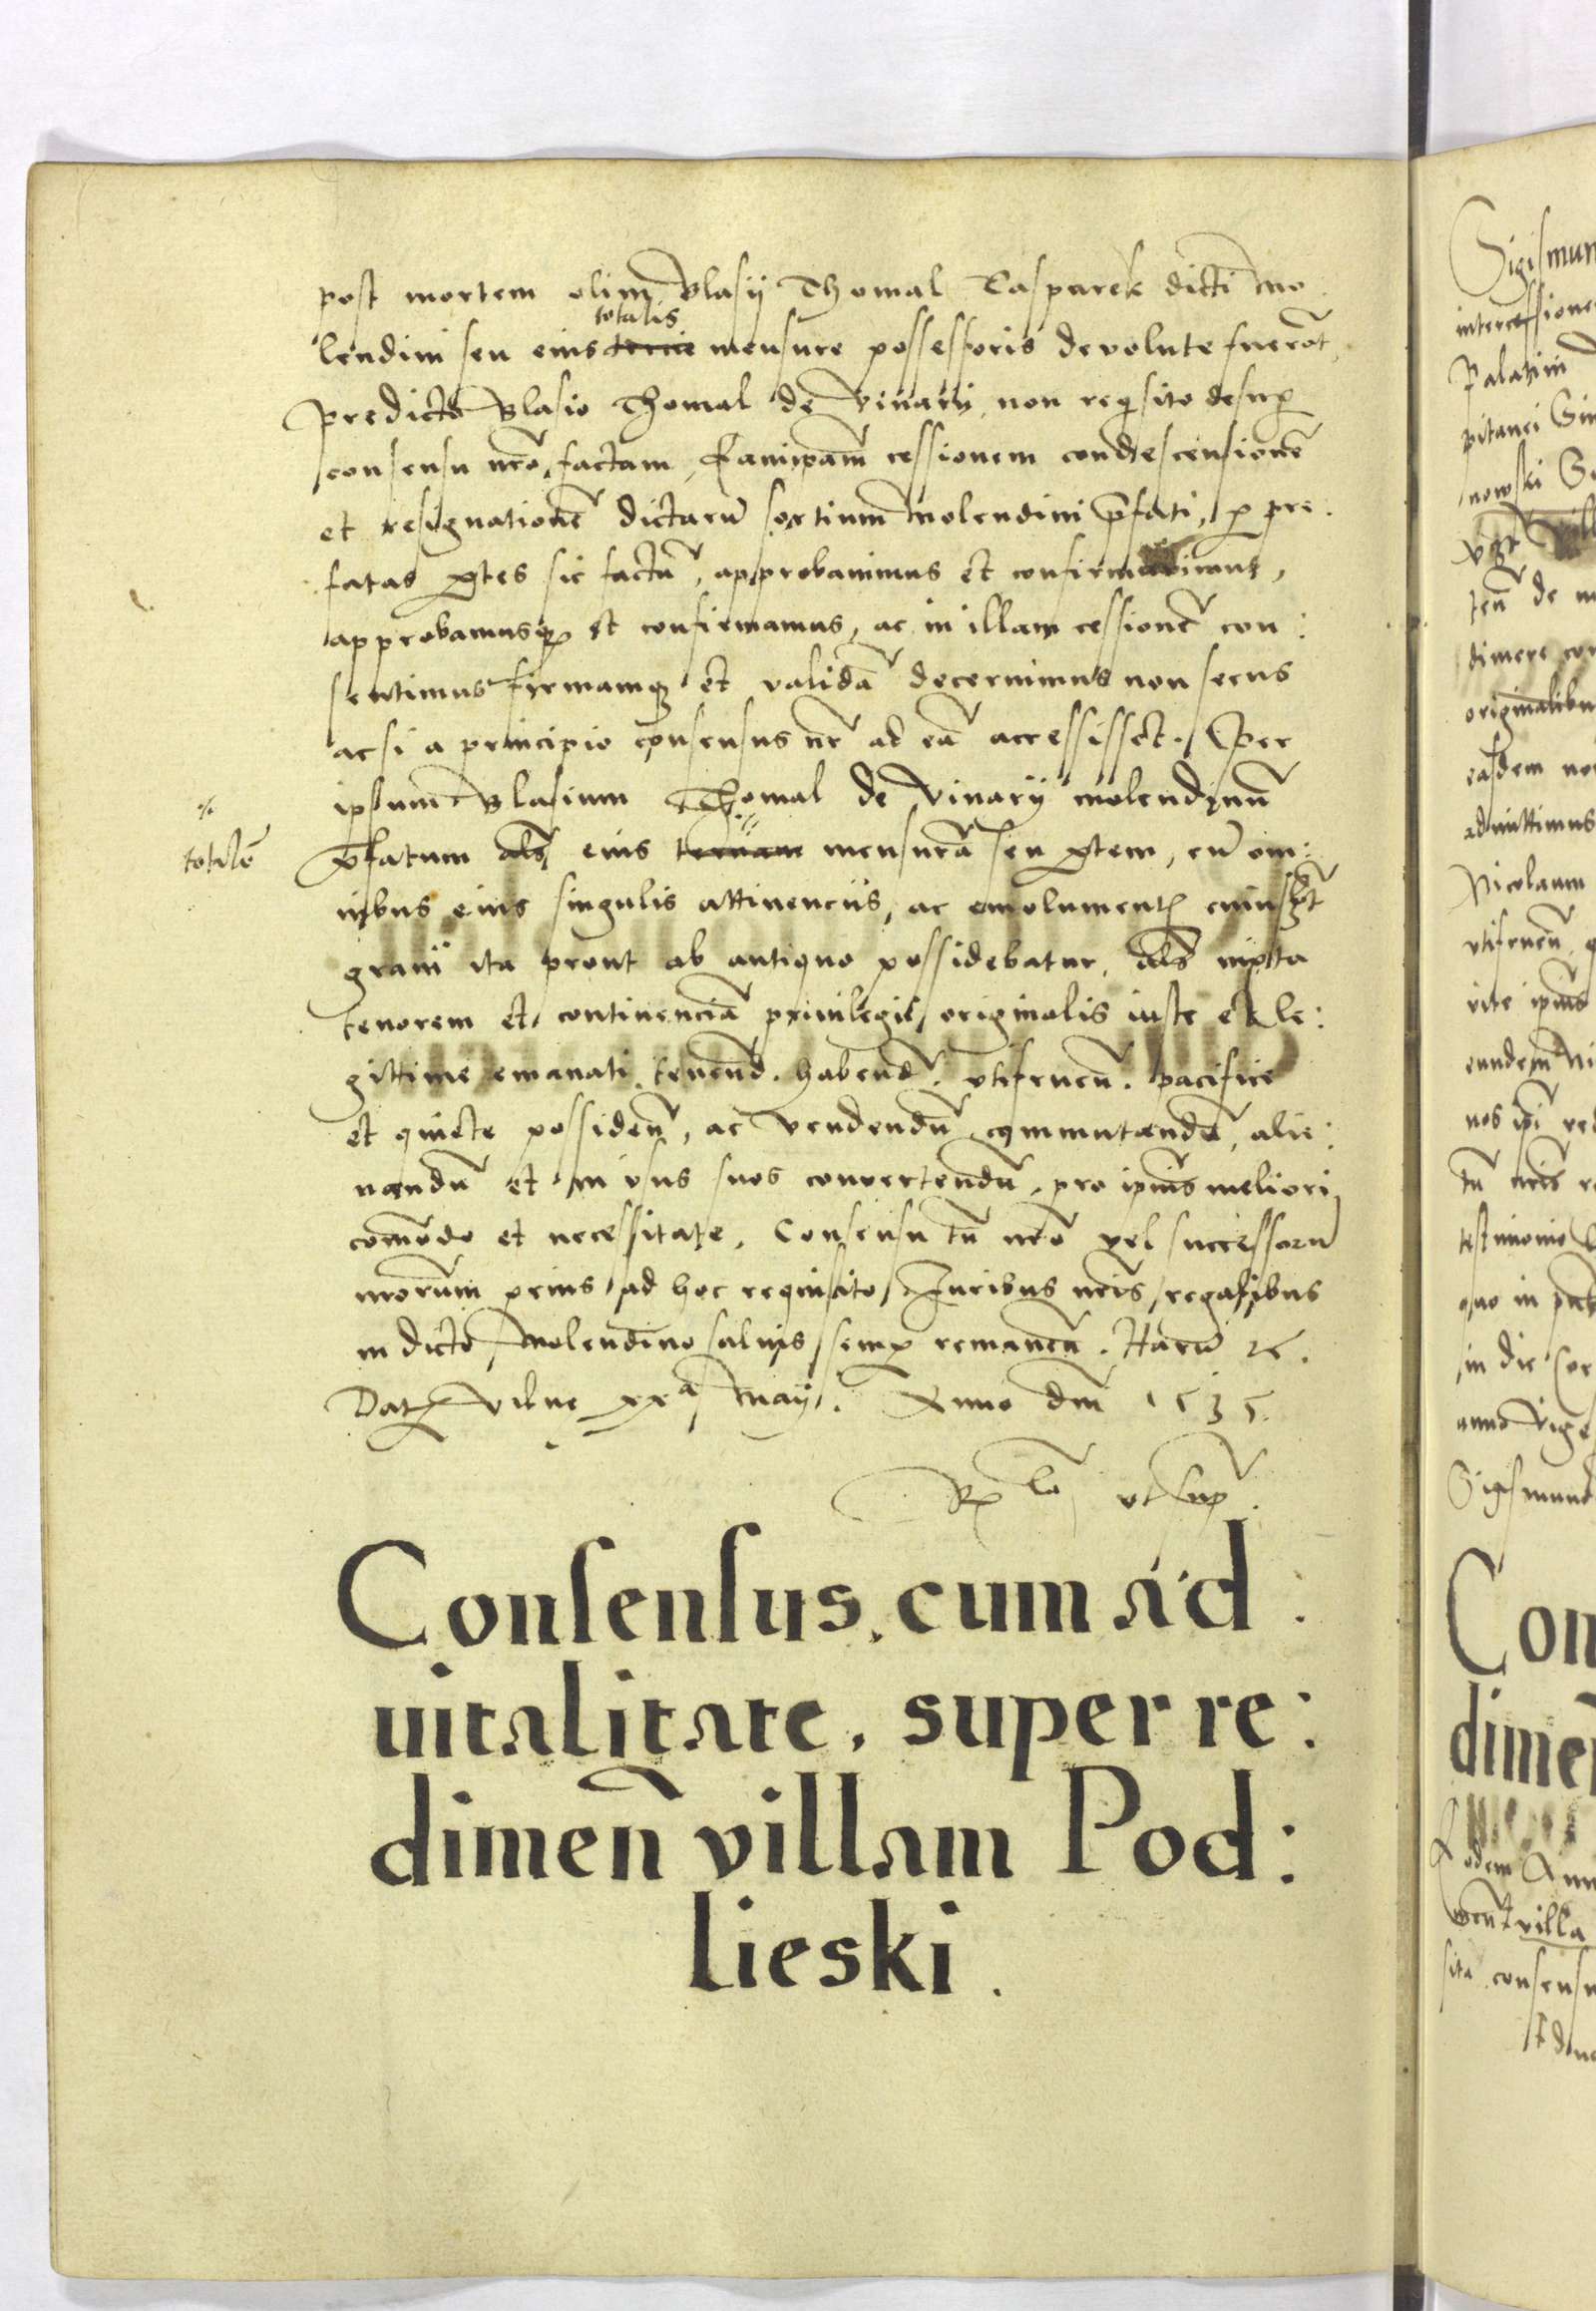 post mortem olim Blasÿ Thomal Casparek dicti mo
totalis
lendini seu eius tercie mensure possessoris devolute fuerōt,
predicto Blasio Thomal de Vinary, non reqsito desup
consensu nrō, factam, cessionem condescensionē
et resignationē dictarū sortium molendini p̄fati, p pre
fatas ptes sic factā, approbavimus et confirmavimus,
approbamusq et confirmamus, ac in illam cessionē con:
sentimus firmamq et validā decernimus non secus
ac si a principio consensus nr̄ ad eā accessisset. Per
ipsum Blasium Thomal de Vinarÿ molendinū
totalē
p̄fatum als eius terciam mensurā seu ptem, cū om:
nibus eius singulis attinenciis, ac emolument
ita prout ab antiquo possidebatur, als iuxta
tenorem et continenciā privilegii originalis iuste et le:
gittime emanati tenend. habend. utifruen. pacifice
et quiete possiden, ac vendendū commutandū, alie:
nandū et in usus suos convertendū, pro ipius meliori
comodo et necessitate. Consensu tn̄ nrō vel successorū
nrorum prius ad hoc requisito Iuribus nris regalibus
in dicto molendino salvis semp remanen. Harū
Dat Vilne xxa Maÿ. Anno dm̄ 1535.
ut sup
Consensus, cum ad:
vitalitate, super re:
dimen̄ villam Pod:
lieski.
Sigismun
intercessione
Palatini
pitanei
nowski
ten de
dimere con
originalibu
easdem no
admittimus
Nicolaum
utifruen
vite ipius
eundem Ni
nos ipi
tn nris
testimonio
quo in
in die Cor
anno vige
Sigismund
Con
dimen
Eodem Ann
men villa
sita consensu